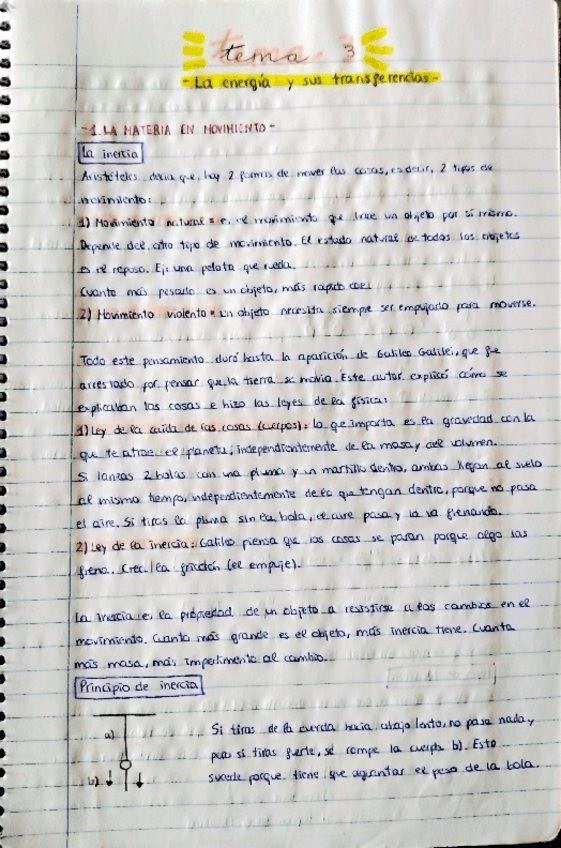 tema 3
- La energía y sus transferencias -
- 1. LA MATERIA EN MOVIMIENTO -
La inercia
Aristóteles decía que hay 2 formas de mover las cosas, es decir, 2 tipos de
movimiento:
1) Movimiento natural = el movimiento que hace un objeto por sí mismo.
Depende del otro tipo de movimiento. El estado natural de todos los objetos
es el reposo. Ej: una pelota que rueda.
Cuanto más pesado es un objeto, más rápido cae.
2) Movimiento violento = un objeto necesita siempre ser empujado para moverse.
Todo este pensamiento duró hasta la aparición de Galileo Galilei, que fue
arrestado por pensar que la tierra se movía. Este autor explicó cómo se
explicaban las cosas e hizo las leyes de la física:
1) Ley de la caída de las cosas (cuerpos): lo que importa es la gravedad con la
que te atrae el planeta, independientemente de la masa y del volumen.
Si lanzas 2 bolas con una pluma y un martillo dentro, ambas llegan al suelo
al mismo tiempo, independientemente de lo que tengan dentro, porque no pasa
el aire. Si tiras la pluma sin la bola, el aire pasa y la va frenando.
2) Ley de la inercia: Galileo piensa que las cosas se paran porque algo las
frena. la fricción (el empuje).
La inercia es la propiedad de un objeto a resistirse a los cambios en el
movimiento. Cuanto más grande es el objeto, más inercia tiene. Cuanta
más masa, más impedimento al cambio.
Principio de inercia
a)
b)
Si tiras de la cuerda hacia abajo lento, no pasa nada y
pero si tiras fuerte, se rompe la cuerda b). Esto
sucede porque tiene que aguantar el peso de la bola.